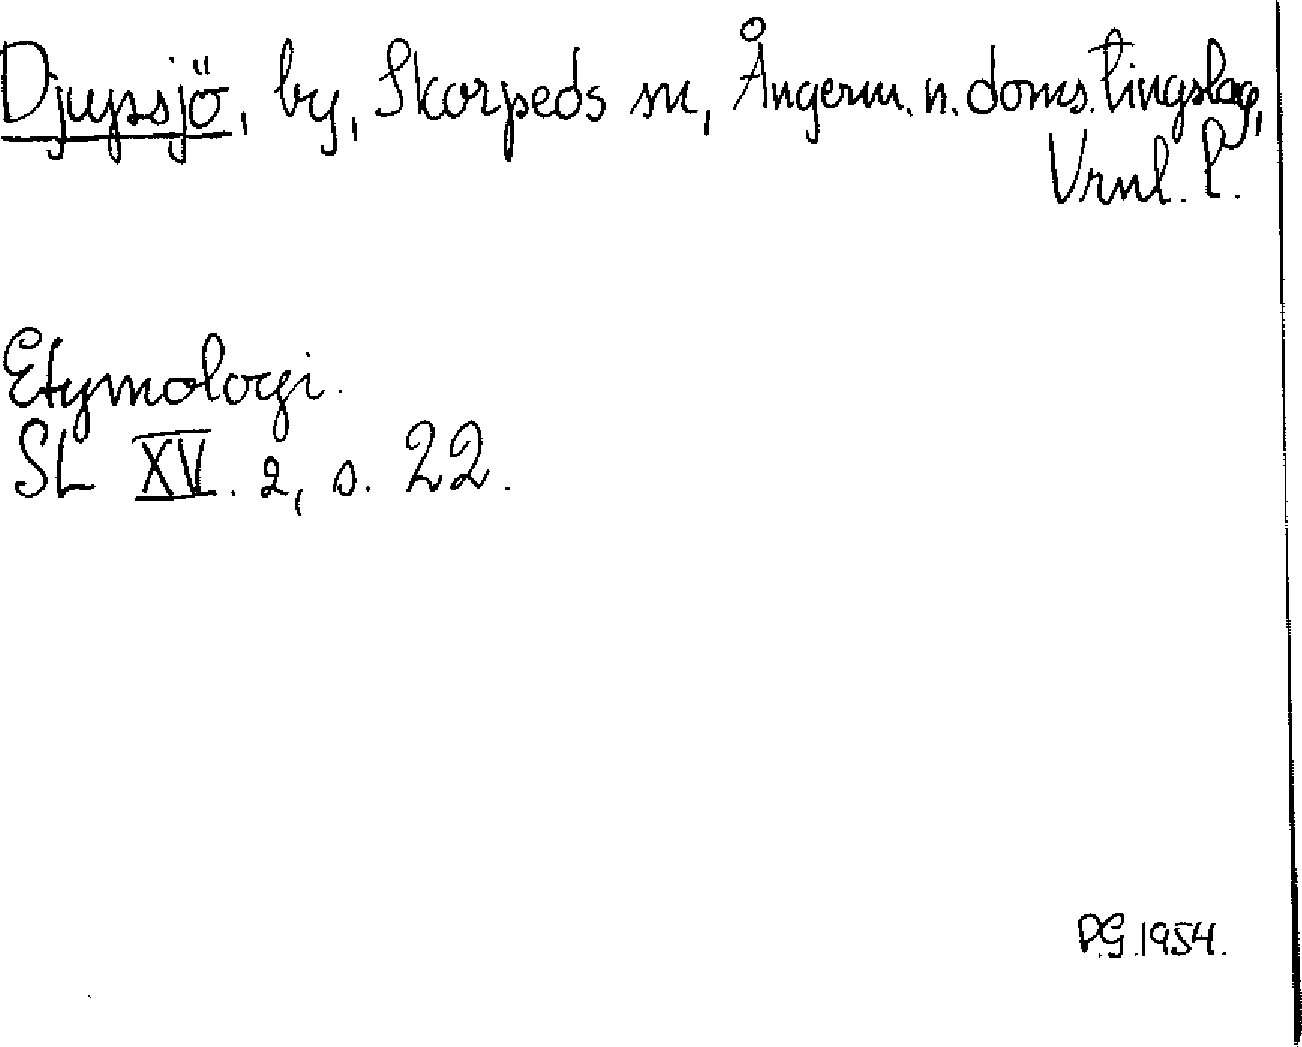 Djupsjö, by, Skorpeds sn, Ångerm. n. doms. tingslag,
Vrnl. l.
Etymologi.
SL XV. 2, s. 22.
DG. 1954.